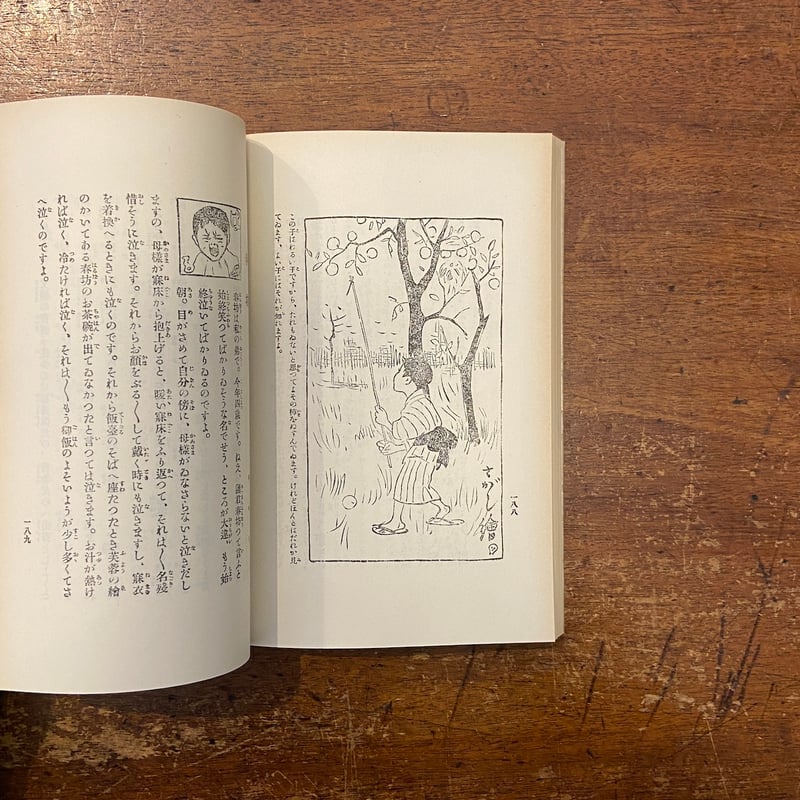 一八八
さがし繪
この子はわるい子ですから、たれもゐないと思つてよその柿をぬすんでゐます。けれどほんとはだれか見
てゐます。よい子にはそれが知れますよ。
春坊は私の弟で、今年四歳です。ねえ、春坊つて言ふと
始終笑つてばかりゐそうな名でせう、ところが大違、もう始
終泣いてばかりゐるのですよ。
朝。目がさめて自分の傍に、母樣がゐなさらないと泣きだし
ますの、母樣が寢床から抱上げると、暖い寢床をふり返つて、それは〳〵名殘
惜そうに泣きます。それからお顏をぶる〳〵して戴く時にも泣きますし、寢衣
を着換へるときにも泣くのです。それから飯臺のそばへ座たつたとき芙蓉の繪
のかいてある春坊のお茶碗が出てゐなかつたと言つては泣きます。お汁が熱け
れば泣く、冷たければ泣く、それは〳〵もう御飯のよそいようが少し多くてさ
へ泣くのですよ。
一八九